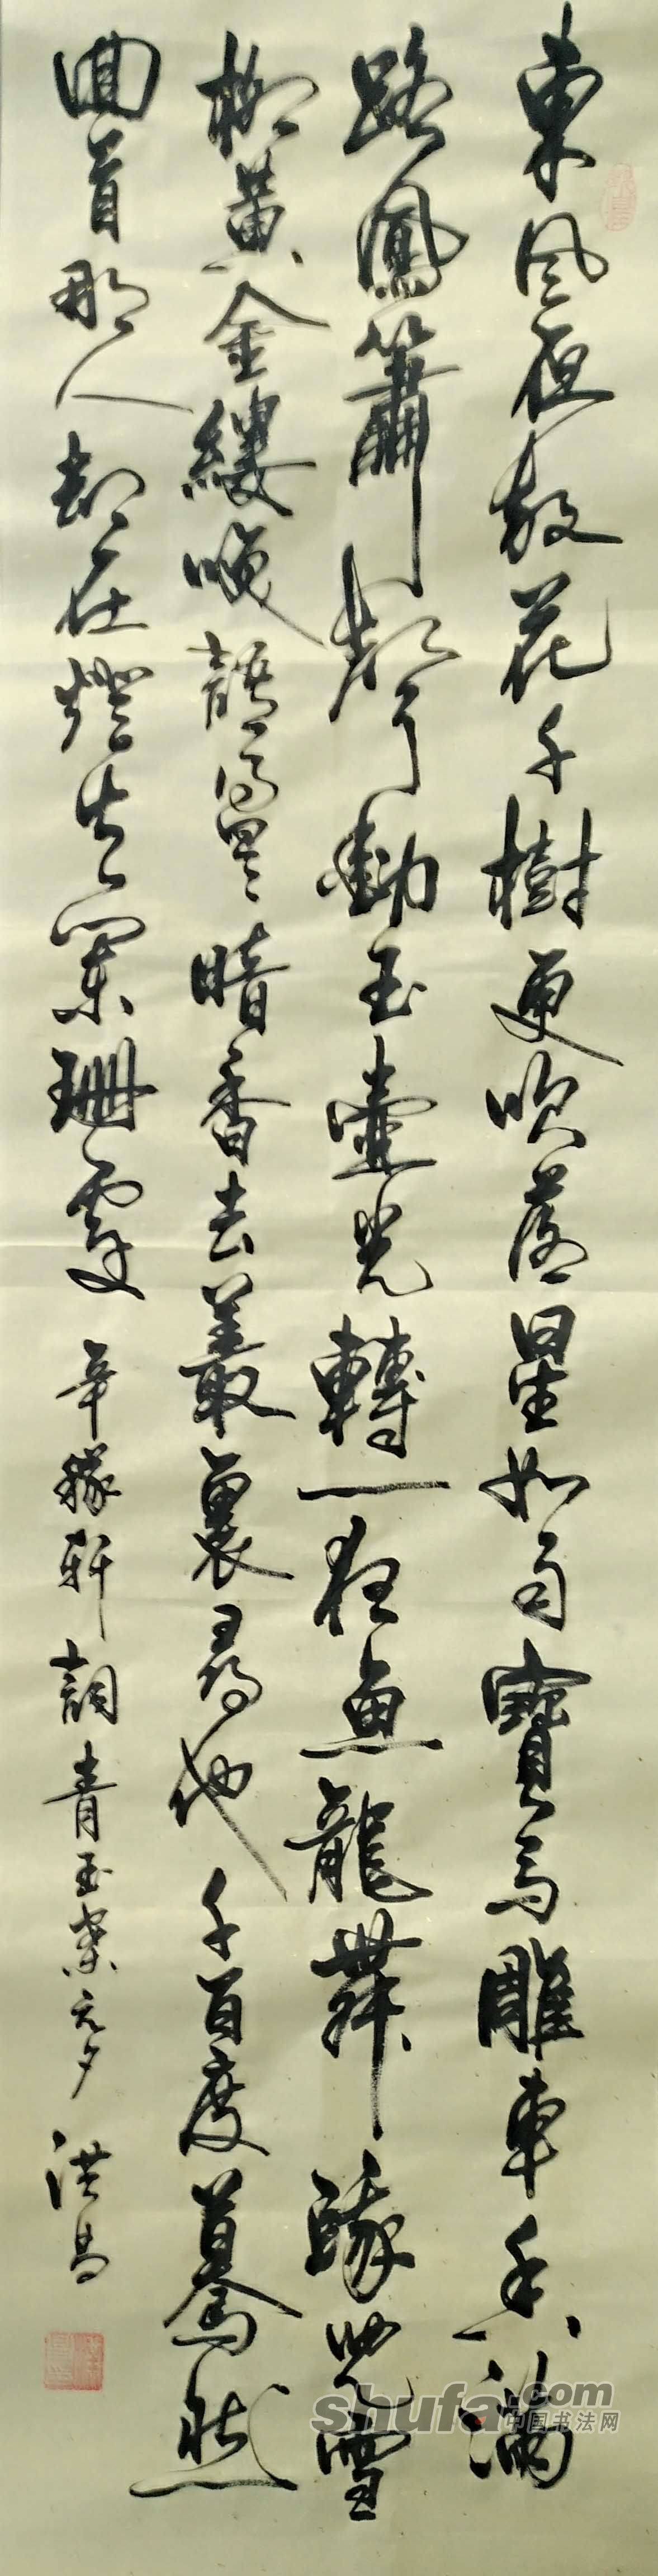 東风夜放花千樹更吹落星如雨寶馬雕車香滿
路鳳簫聲動玉壺光轉一夜魚龍舞蛾兒雪
柳黃金縷咲語盈盈暗香去叢裏尋他千百度驀然
回首那人却在燈火闌珊處 辛稼軒詞青玉案元夕 洪昌
shufa.com
中国书法网